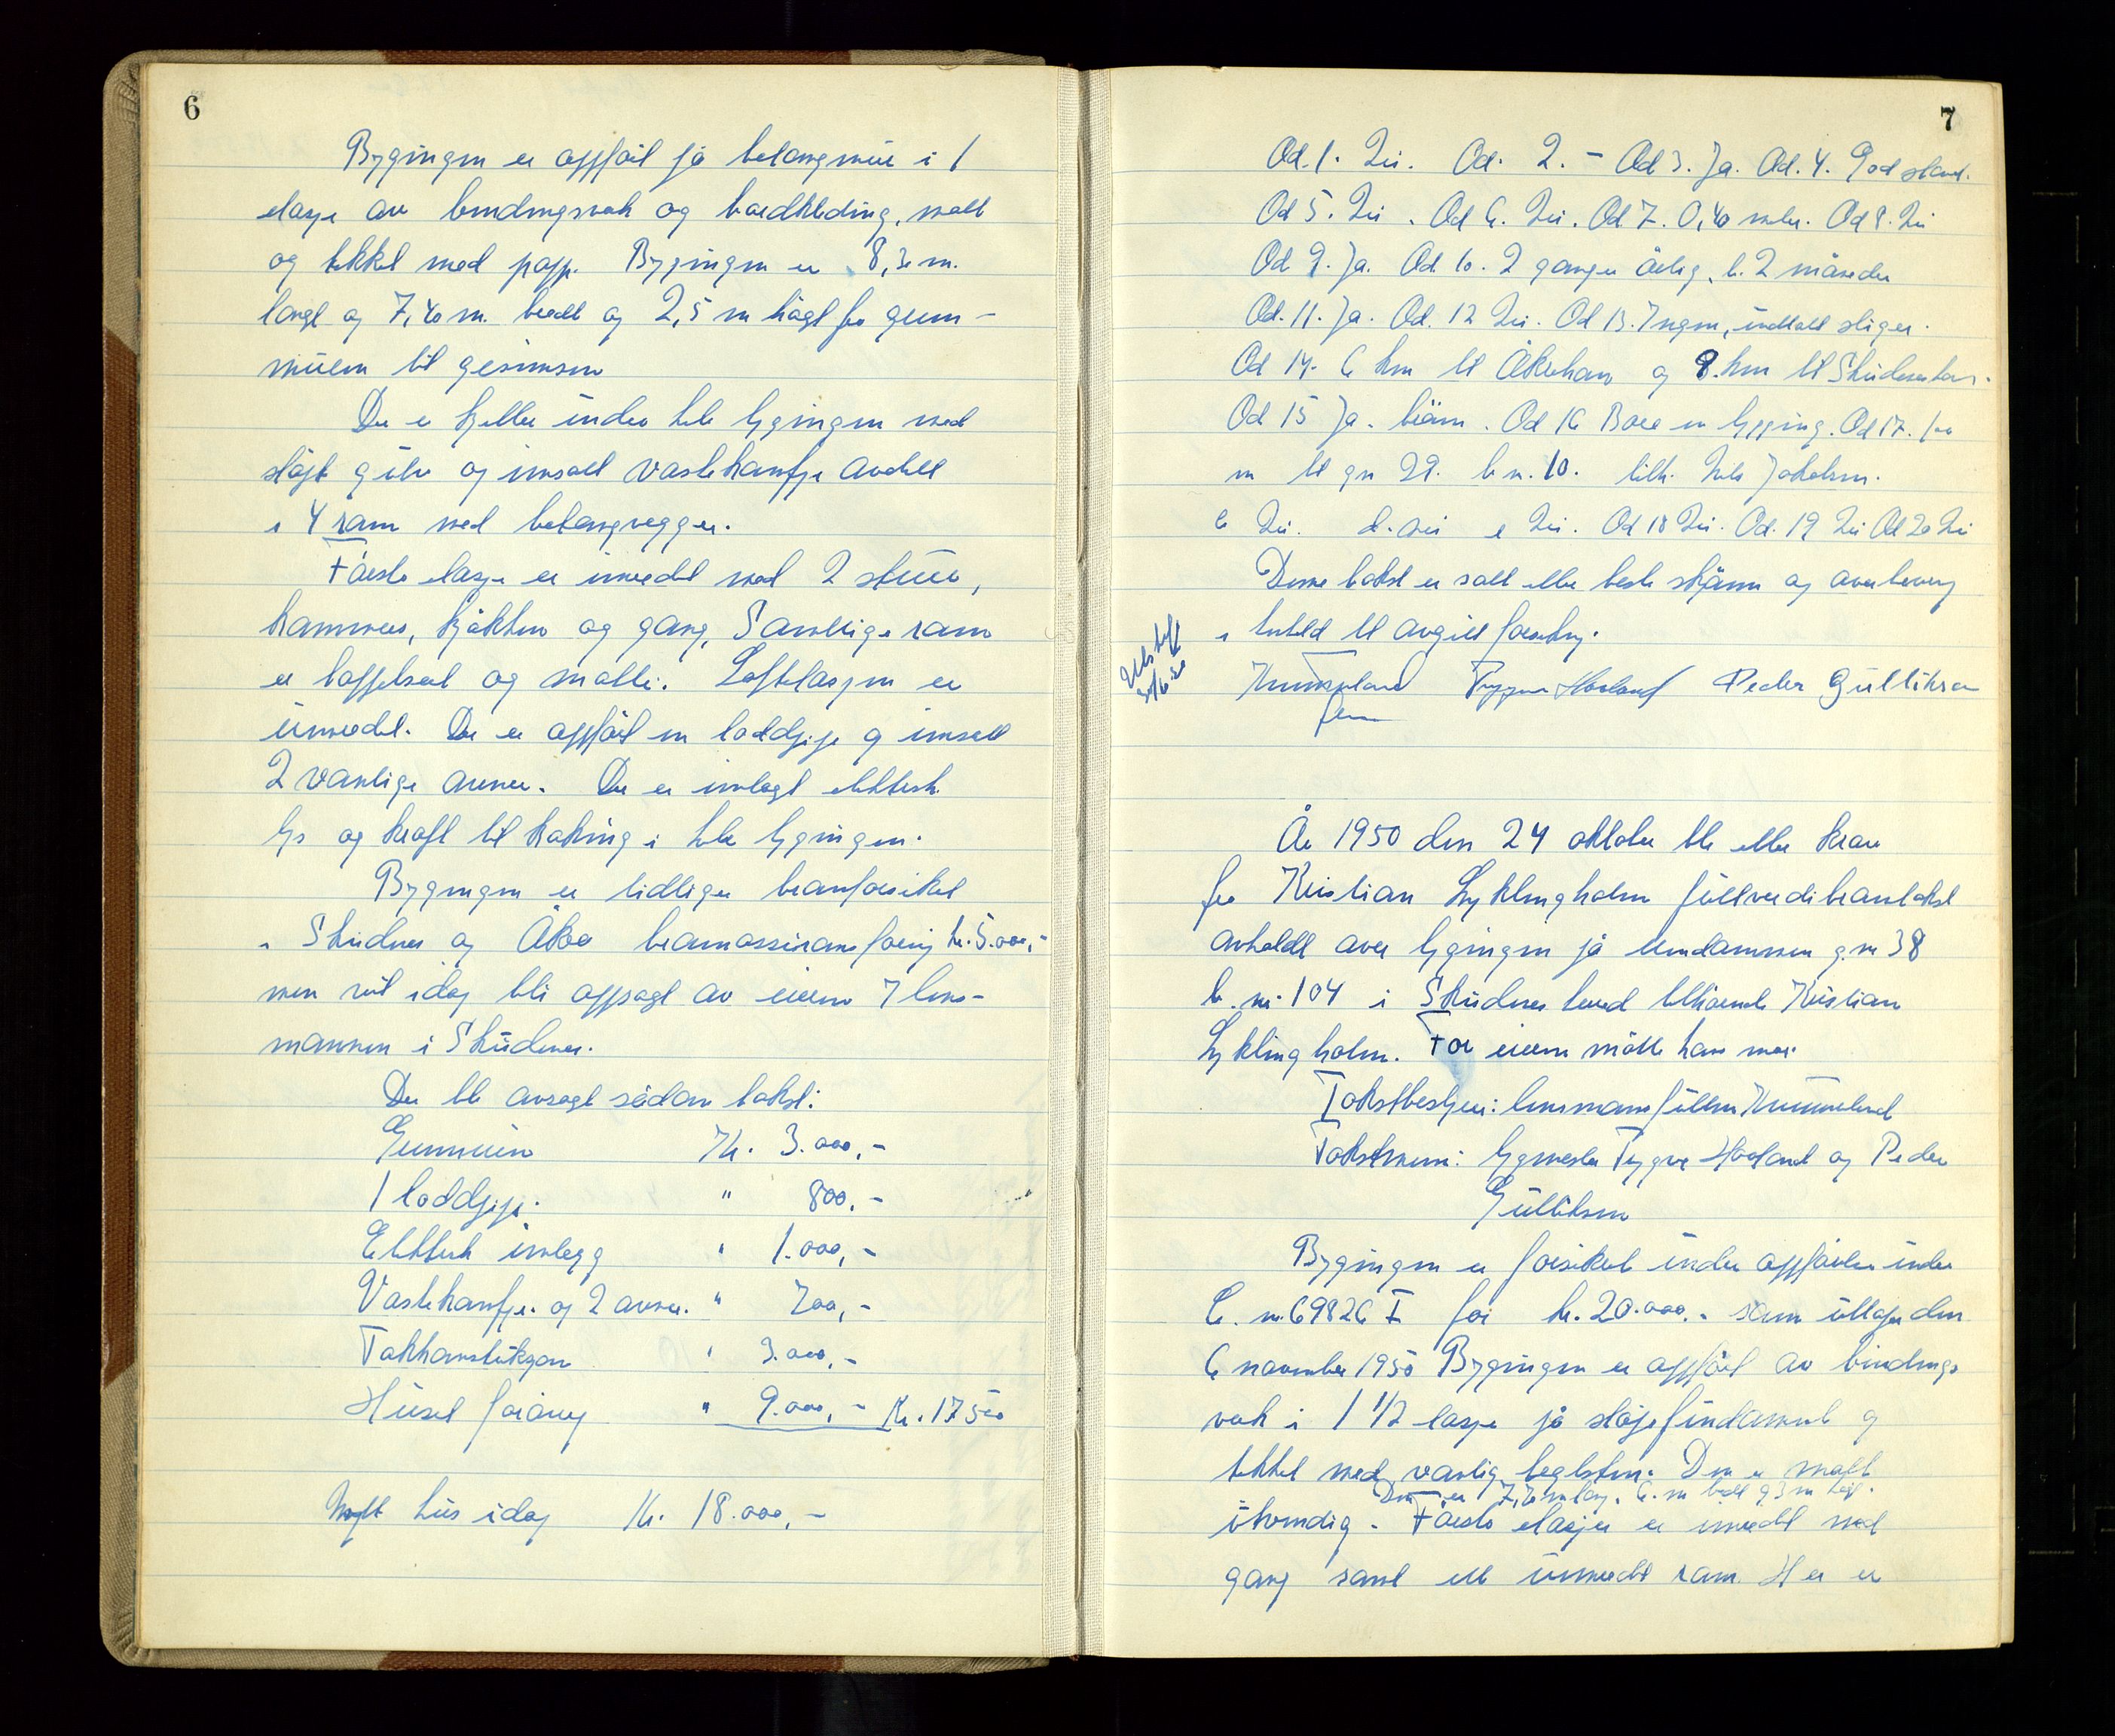 6
Bygingen er oppført på betongmur i 1
etasje av bindingsverk og bordkleding, malt
og tekket med papp. Bygingen er 8,30 m.
langt og 7,40 m. bredt og 2,5 m høgt fra grunn-
muren til gesimsen
Der er kjeller under hele bygingen med
støpt gulv og innsatt vaskekamfyr avdelt
i 4 rom med betongvegger.
Første etasje er innredet med 2 stuer,
kammers, kjøkken og gang. Samtlige rom
er boffetsert og malte. Loftetasjen er
uinredet. Der er oppført en loddpipe og innsatt
2 vanlige ovner. Der er innlagt elektrisk
lys og kraft til koking i hele bygingen.
Bygingen er tidligere branforsikret
i Skudenes og Åkra brannassuranseforening kr. 5.000,-
men vil idag bli oppsagt av eieren / lens-
mannen i Skudenes.
Der ble avsagt sådan takst:
Grunnmuren Kr. 3.000,-
1 loddpipe. " 800,-
Elektrisk innlegg " 1.000,-
Vaskekamfyr og 2 ovner. " 700,-
Takkonstuksjon " 3.000,-
Huset forøvrig " 9.000,- Kr. 17500
Nytt hus idag Kr. 18.000,-
7
Ad. 1. Nei. Ad. 2. - Ad 3. Ja. Ad. 4. God stand.
Ad 5. Nei. Ad 6. Nei. Ad 7. 0,40 meter. Ad 8. Nei
Ad 9. Ja. Ad. 10. 2 ganger årlig. b. 2 måneder
Ad. 11. Ja. Ad. 12 Nei. Ad 13. Ingen, undtatt stiger.
Ad 14. 6 km til Åkrehavn og 8 km til Skudeneshavn.
Ad 15 Ja. brønn. Ad 16 Bare en bygging. Ad 17. 100
m til gn 29. b n. 10. tilh. Nils Jakobsen.
c Nei. d. nei e Nei. Ad 18 Nei. Ad. 19 Nei Ad 20 Nei
Denne takst er satt etter beste skjønn og overbevisning
i henhold til avgitt forsikring.
Utskrift
30/6-50
Trygve Hovland Peder Gulliksen
År 1950 den 24 oktober ble etter krav
fra Kristian Lyklingholm fullverdibrantakst
avholdt over bygingen på eiendommen g. nr 38
b. nr. 104 i Skudenes herred tilhørende Kristian
Lyklingholm. For eieren møtte han selv.
Takstbestyrer: lensmansfullm Kummeland
Takstmenn: bygmester Trygve Hovland og Peder
Gulliksen
Bygingen er forsikret under oppførelse under
C. nr. 69826 I for kr. 20.000,- som utløper den
6 november 1950 Bygingen er oppført av bindings
verk i 1 1/2 etasje på støpt fundament og
tekket med vanlig teglsten. Den er malt
Den er 7,70 m lang, 6. m bred og 3 m høg.
utvendig. Første etasje er innredet med
gang samt ett uinnredet rom. Her er